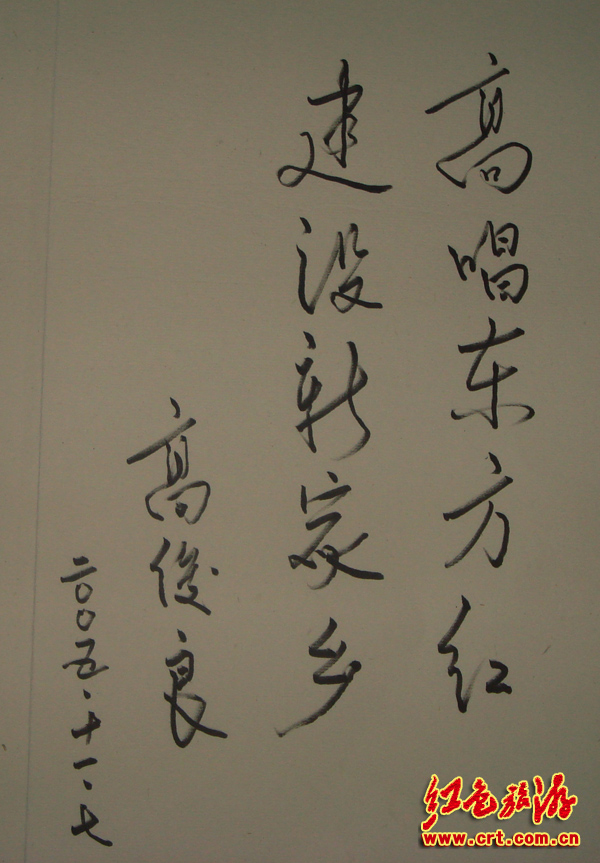 高唱东方红
建设新家乡
高俊良
二〇〇五·十一·七
红色旅游
www.crt.com.cn